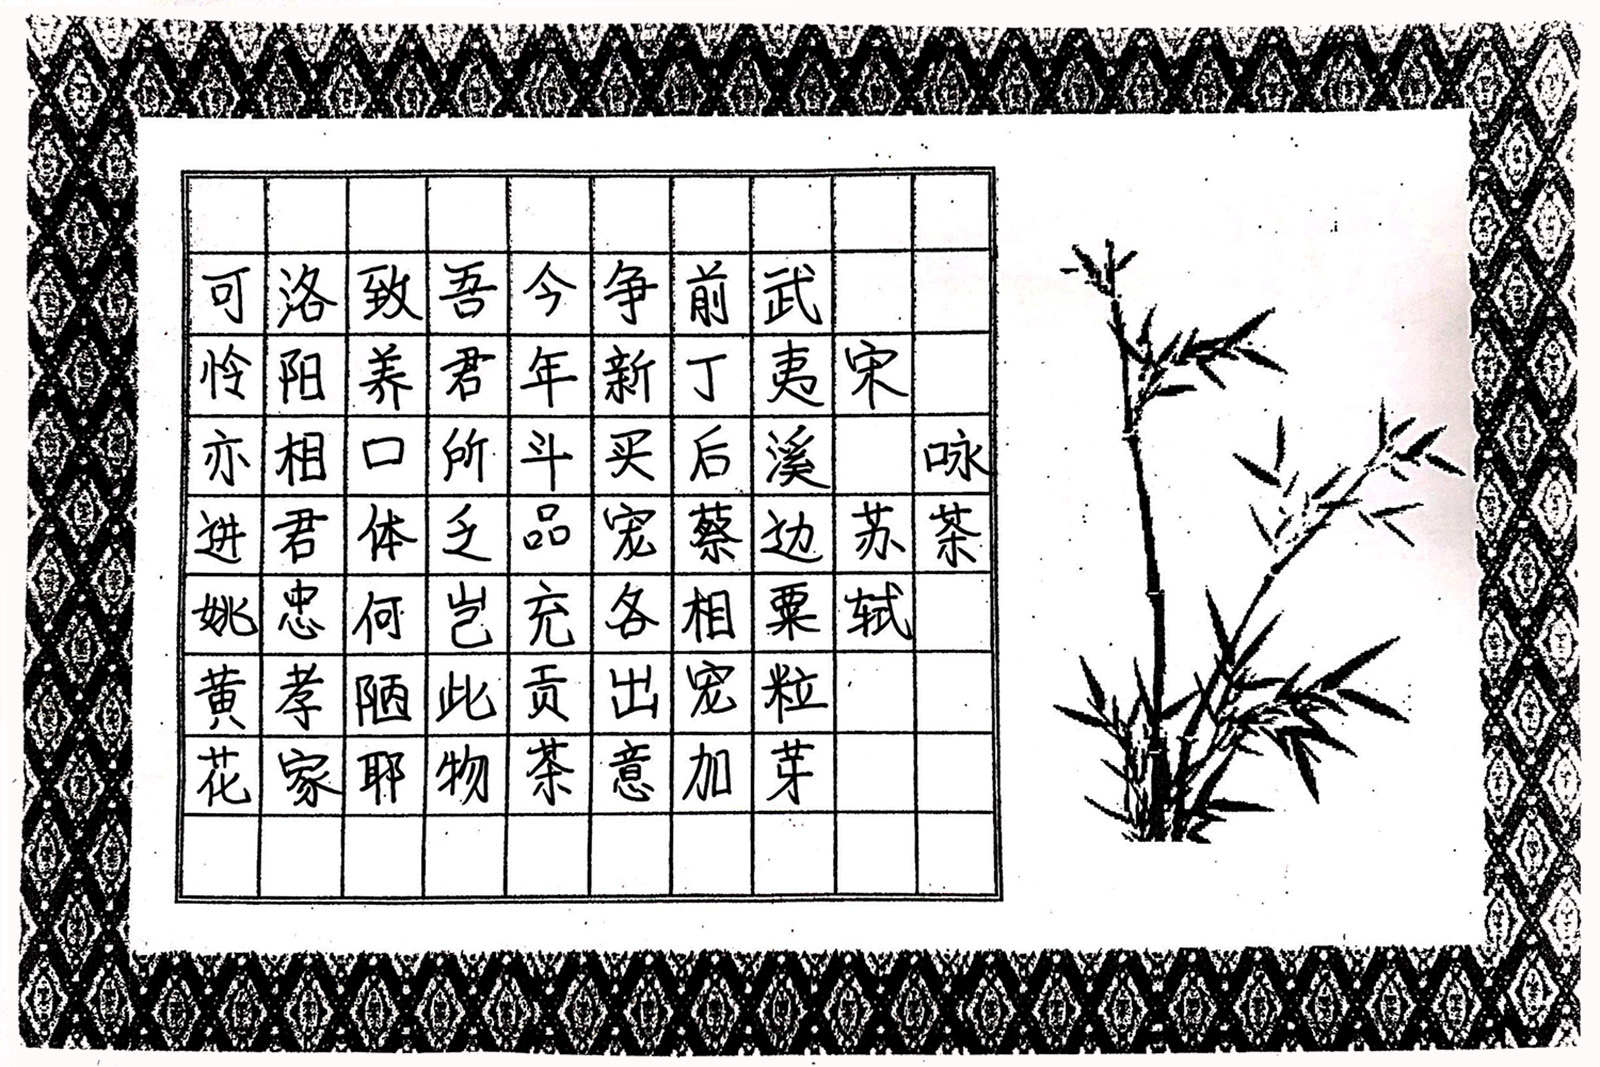 咏茶
宋苏轼
武夷溪边粟粒芽
前丁后蔡相宠加
争新买宠各出意
今年斗品充贡茶
吾君所乏岂此物
致养口体何陋耶
洛阳相君忠孝家
可怜亦进姚黄花